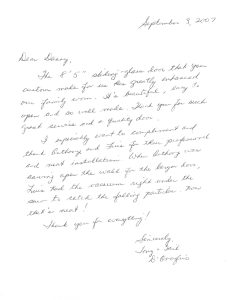 September 9, 2007
Dear Danny,
The 8' 5" sliding glass door that you
custom made for us has greatly enhanced
our family room. It's beautiful, easy to
open and so well made. Thank you for such
great service and a quality door.
I especially want to compliment and
thank Anthony and Luis for their professional
and neat installation. When Anthony was
sawing open the wall for the larger door,
Luis had the vacuum right under the
saw to catch the falling particles. Now
that's neat!
Thank you for everything!
Sincerely,
Tony &
D'Onofrio